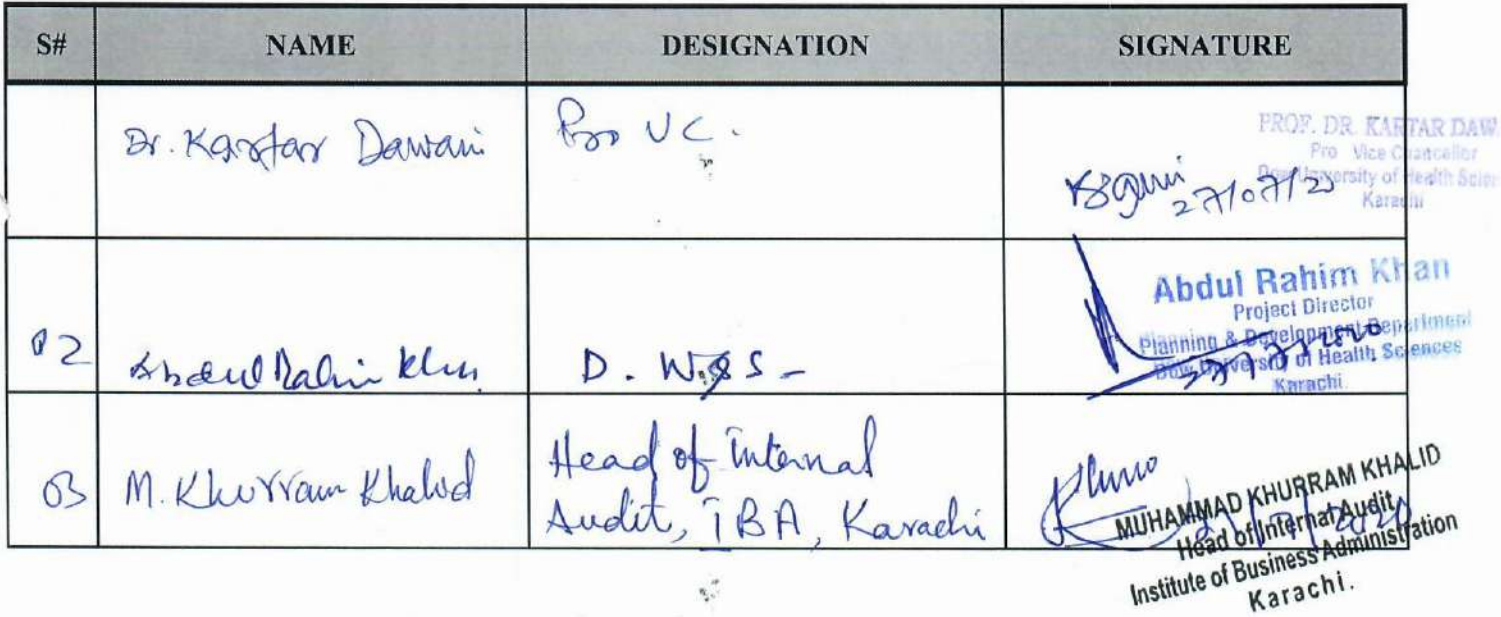 S# NAME DESIGNATION SIGNATURE
Dr. Kartar Dawani Pro VC.
27/07/20
PROF. DR. KARTAR DAW
Pro Vice Chancellor
Dow University of Health Scien
Karachi
02 Abdul Rahim Khan D. W&S-
Abdul Rahim Khan
Project Director
Planning & Development Department
Dow University of Health Sciences
Karachi.
03 M. Khurram Khalid Head of Internal
Audit, IBA, Karachi
MUHAMMAD KHURRAM KHALID
Head of Internal Audit
Institute of Business Administration
Karachi.